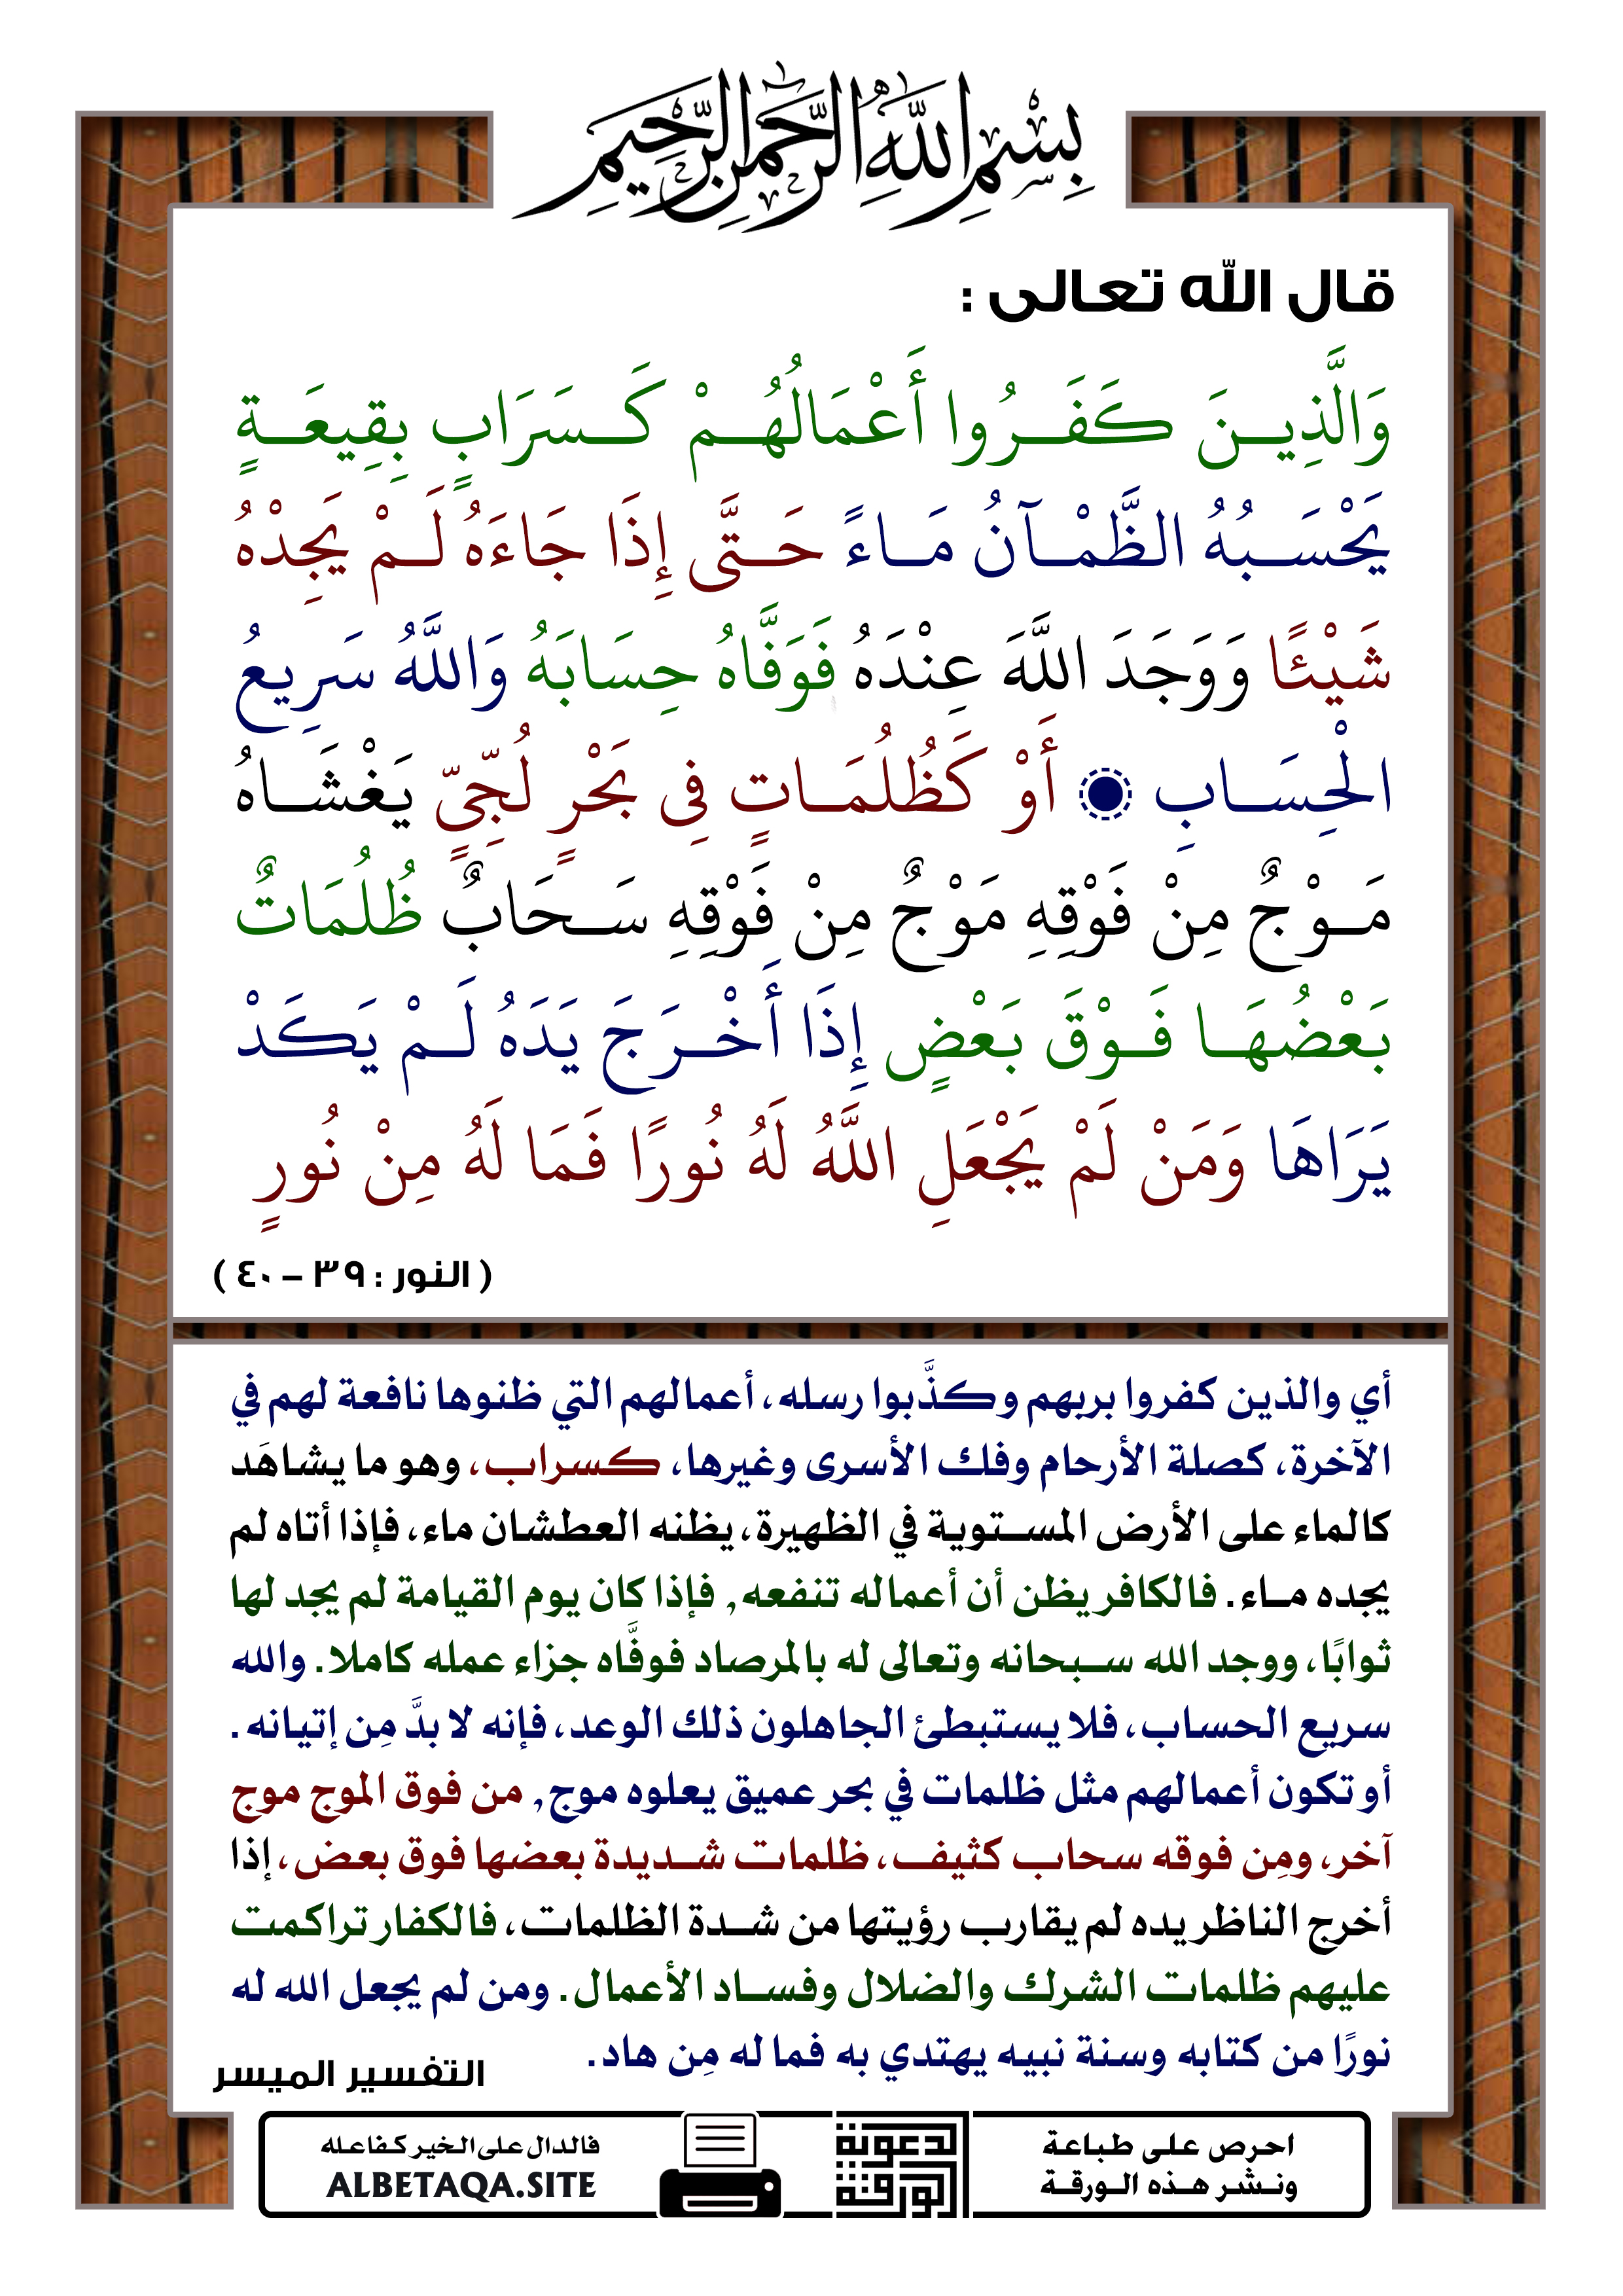 بِسْمِ اللَّهِ الرَّحْمَٰنِ الرَّحِيمِ
قال الله تعالى :
وَالَّذِينَ كَفَرُوا أَعْمَالُهُمْ كَسَرَابٍ بِقِيعَةٍ
يَحْسَبُهُ الظَّمْآنُ مَاءً حَتَّى إِذَا جَاءَهُ لَمْ يَجِدْهُ
شَيْئًا وَوَجَدَ اللَّهَ عِنْدَهُ فَوَفَّاهُ حِسَابَهُ وَاللَّهُ سَرِيعُ
الْحِسَابِ ۝ أَوْ كَظُلُمَاتٍ فِي بَحْرٍ لُجِّيٍّ يَغْشَاهُ
مَوْجٌ مِنْ فَوْقِهِ مَوْجٌ مِنْ فَوْقِهِ سَحَابٌ ظُلُمَاتٌ
بَعْضُهَا فَوْقَ بَعْضٍ إِذَا أَخْرَجَ يَدَهُ لَمْ يَكَدْ
يَرَاهَا وَمَنْ لَمْ يَجْعَلِ اللَّهُ لَهُ نُورًا فَمَا لَهُ مِنْ نُورٍ
( النور : ٣٩ – ٤٠ )
أي والذين كفروا بربهم وكذَّبوا رسله، أعمالهم التي ظنوها نافعة لهم في
الآخرة، كصلة الأرحام وفك الأسرى وغيرها، كسراب، وهو ما يشاهَد
كالماء على الأرض المستوية في الظهيرة، يظنه العطشان ماء، فإذا أتاه لم
يجده ماء. فالكافر يظن أن أعماله تنفعه, فإذا كان يوم القيامة لم يجد لها
ثوابًا، ووجد الله سبحانه وتعالى له بالمرصاد فوفَّاه جزاء عمله كاملا. والله
سريع الحساب، فلا يستبطئ الجاهلون ذلك الوعد، فإنه لا بدَّ مِن إتيانه.
أو تكون أعمالهم مثل ظلمات في بحر عميق يعلوه موج, من فوق الموج موج
آخر، ومِن فوقه سحاب كثيف، ظلمات شديدة بعضها فوق بعض، إذا
أخرج الناظر يده لم يقارب رؤيتها من شدة الظلمات، فالكفار تراكمت
عليهم ظلمات الشرك والضلال وفساد الأعمال. ومن لم يجعل الله له
نورًا من كتابه وسنة نبيه يهتدي به فما له مِن هاد.
التفسير الميسر
احرص على طباعة
ونشر هذه الورقة
الورقة
الدعوية
فالدال على الخير كفاعله
ALBETAQA.SITE